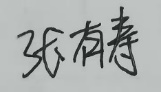 张有寿